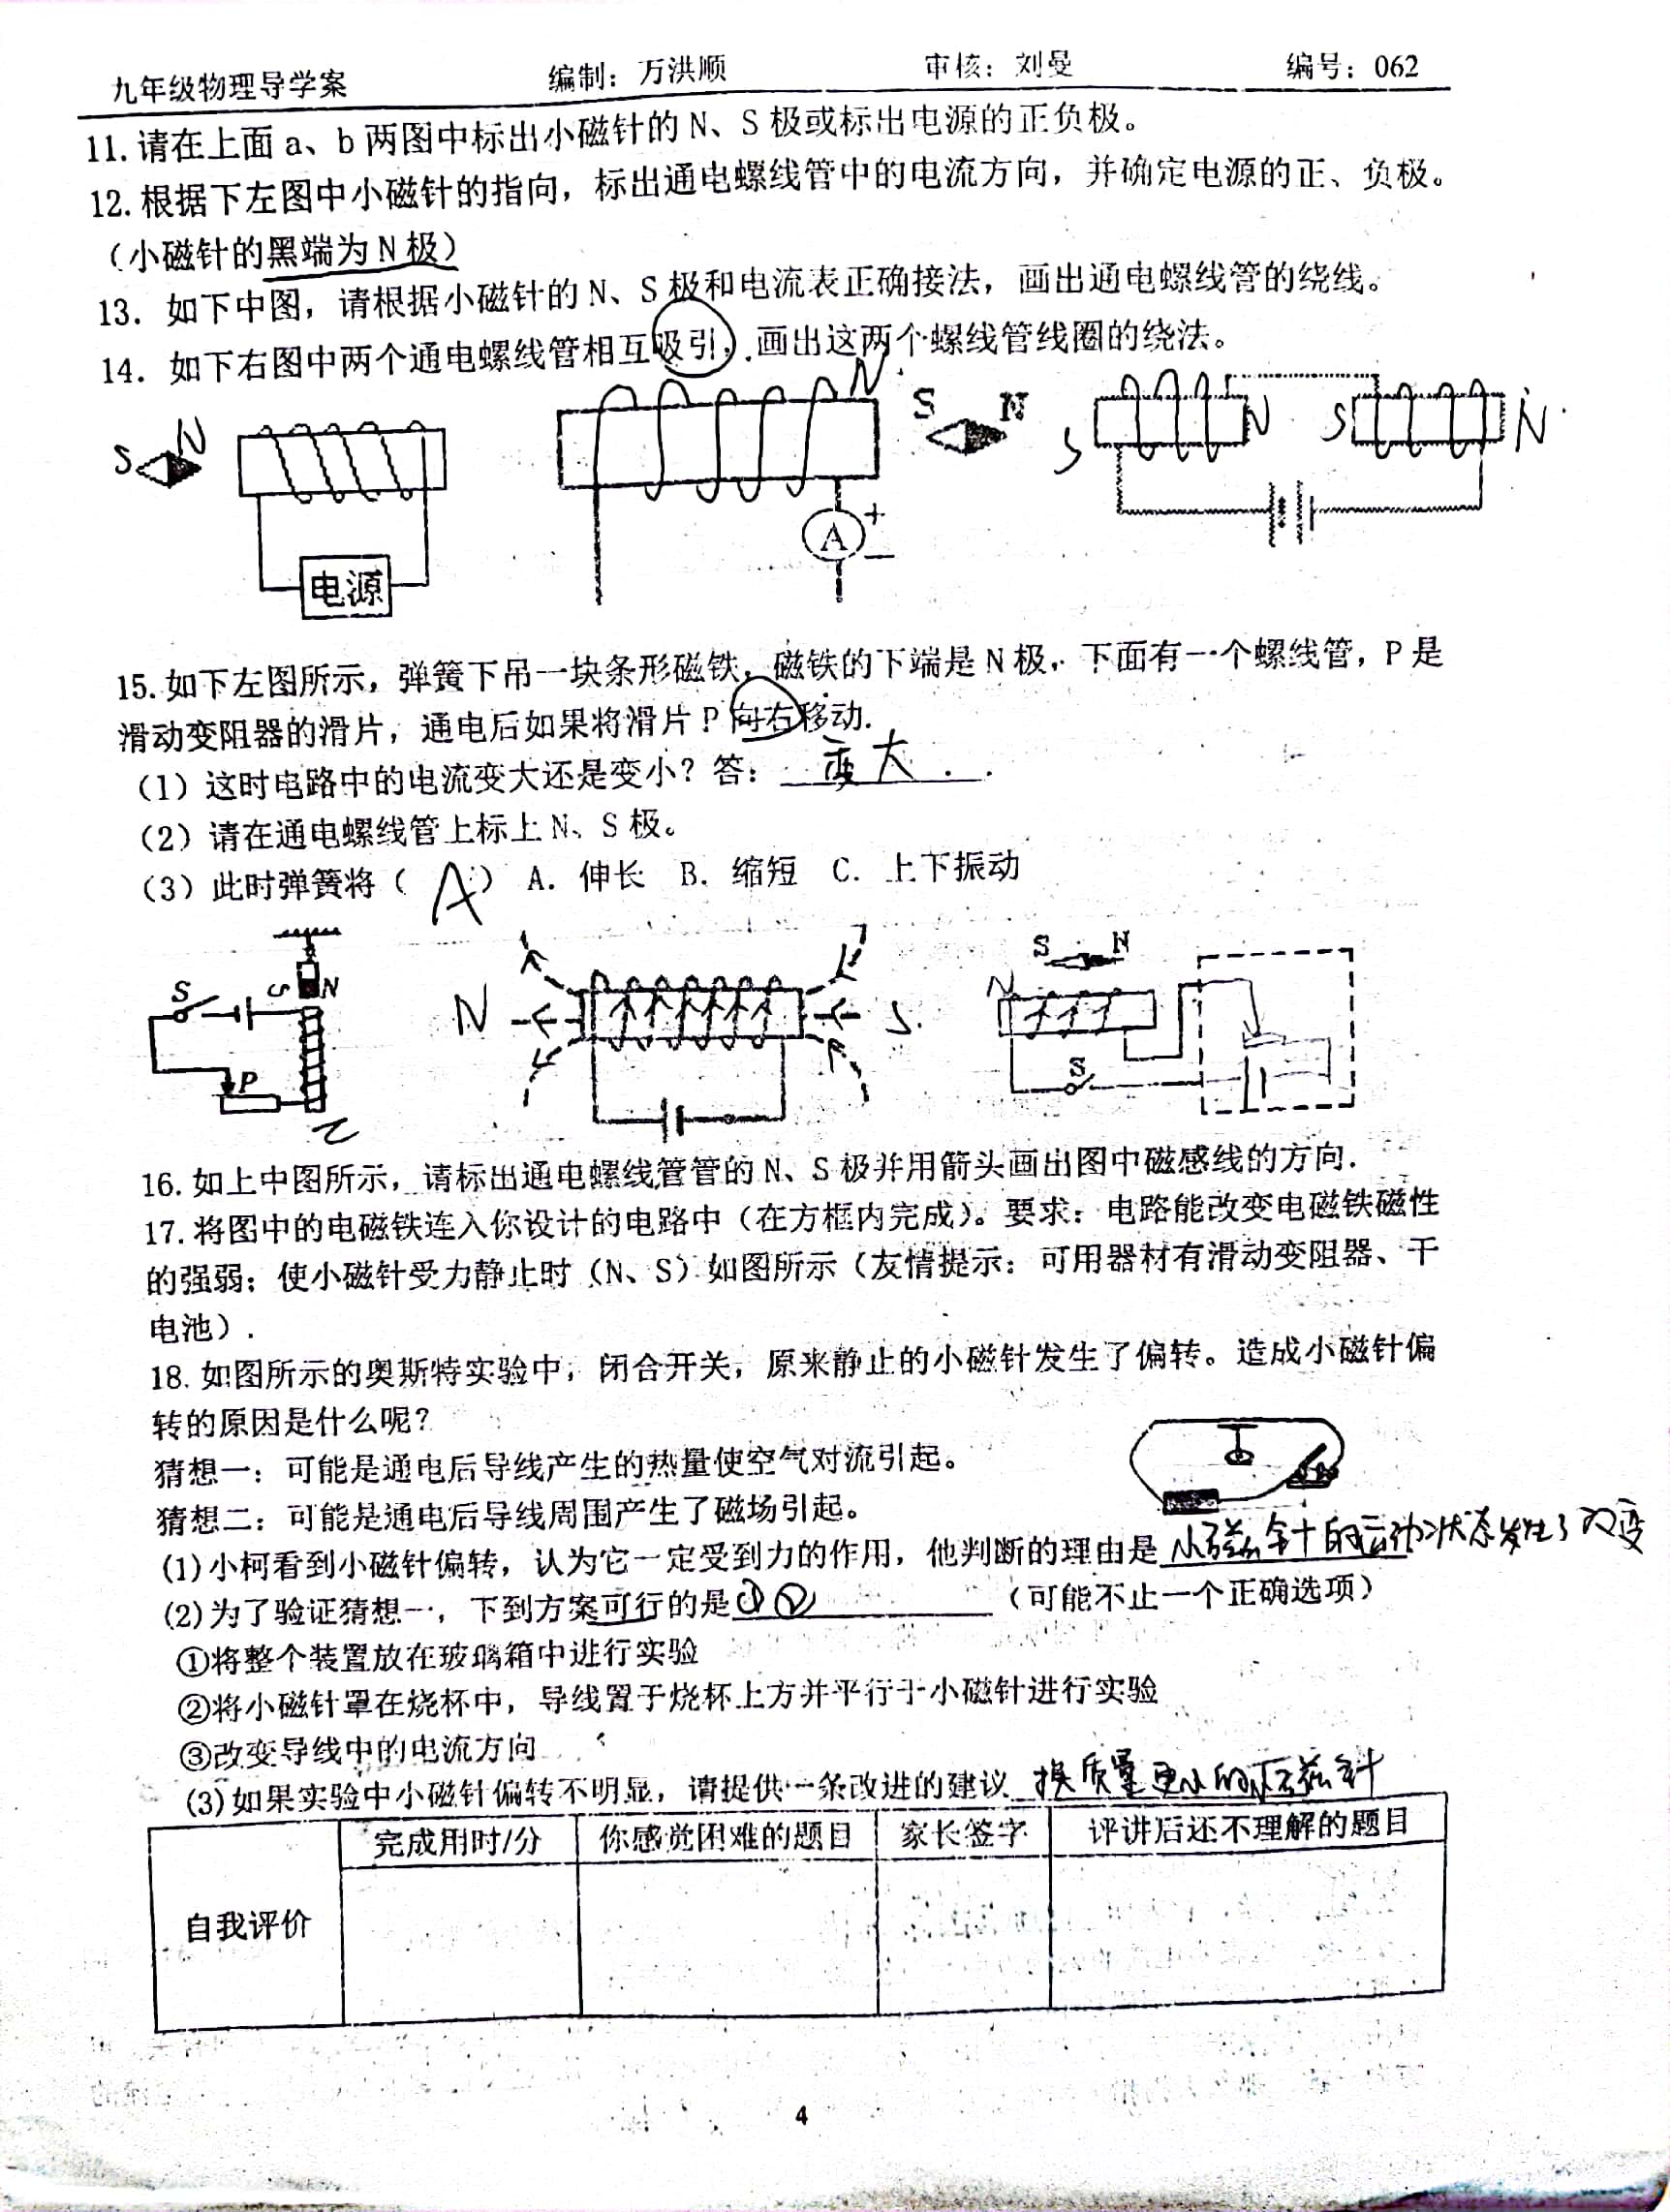 九年级物理导学案 编制：万洪顺 审核：刘曼 编号：062
11.请在上面 a、b 两图中标出小磁针的 N、S 极或标出电源的正负极。
12.根据下左图中小磁针的指向，标出通电螺线管中的电流方向，并确定电源的正、负极。
（小磁针的黑端为 N 极）
13. 如下中图，请根据小磁针的 N、S 极和电流表正确接法，画出通电螺线管的绕线。
14. 如下右图中两个通电螺线管相互吸引，画出这两个螺线管线圈的绕法。
S N
N S N
S N S N
A + −
电源
15.如下左图所示，弹簧下吊一块条形磁铁，磁铁的下端是 N 极，下面有一个螺线管，P 是
滑动变阻器的滑片，通电后如果将滑片 P 向右移动.
（1）这时电路中的电流变大还是变小？答： 变大 .
（2）请在通电螺线管上标上 N、S 极。
（3）此时弹簧将（ A ） A. 伸长 B. 缩短 C. 上下振动
S S N P
N S.
S N N S
16.如上中图所示，请标出通电螺线管管的 N、S 极并用箭头画出图中磁感线的方向.
17.将图中的电磁铁连入你设计的电路中（在方框内完成）。要求：电路能改变电磁铁磁性
的强弱；使小磁针受力静止时（N、S）如图所示（友情提示：可用器材有滑动变阻器、干
电池）.
18.如图所示的奥斯特实验中，闭合开关，原来静止的小磁针发生了偏转。造成小磁针偏
转的原因是什么呢？
猜想一：可能是通电后导线产生的热量使空气对流引起。
猜想二：可能是通电后导线周围产生了磁场引起。
(1)小柯看到小磁针偏转，认为它一定受到力的作用，他判断的理由是 小磁针的运动状态发生了改变
(2)为了验证猜想一，下到方案可行的是 ①② （可能不止一个正确选项）
①将整个装置放在玻璃箱中进行实验
②将小磁针罩在烧杯中，导线置于烧杯上方并平行于小磁针进行实验
③改变导线中的电流方向
(3)如果实验中小磁针偏转不明显，请提供一条改进的建议 换质量更小的小磁针
自我评价 完成用时/分 你感觉困难的题目 家长签字 评讲后还不理解的题目
4